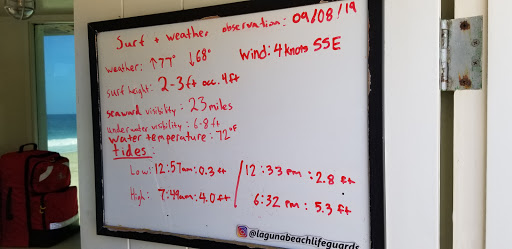 Surf + weather observation: 09/08/19
weather: ↑77° ↓68° Wind: 4 knots SSE
surf height: 2-3 ft occ. 4 ft
seaward visibility: 23 miles
underwater visibility: 6-8 ft
water temperature: 72°F
tides:
Low: 12:57am: 0.3 ft / 12:33 pm: 2.8 ft
High: 7:49am: 4.0 ft / 6:32 pm: 5.3 ft
@lagunabeachlifeguards